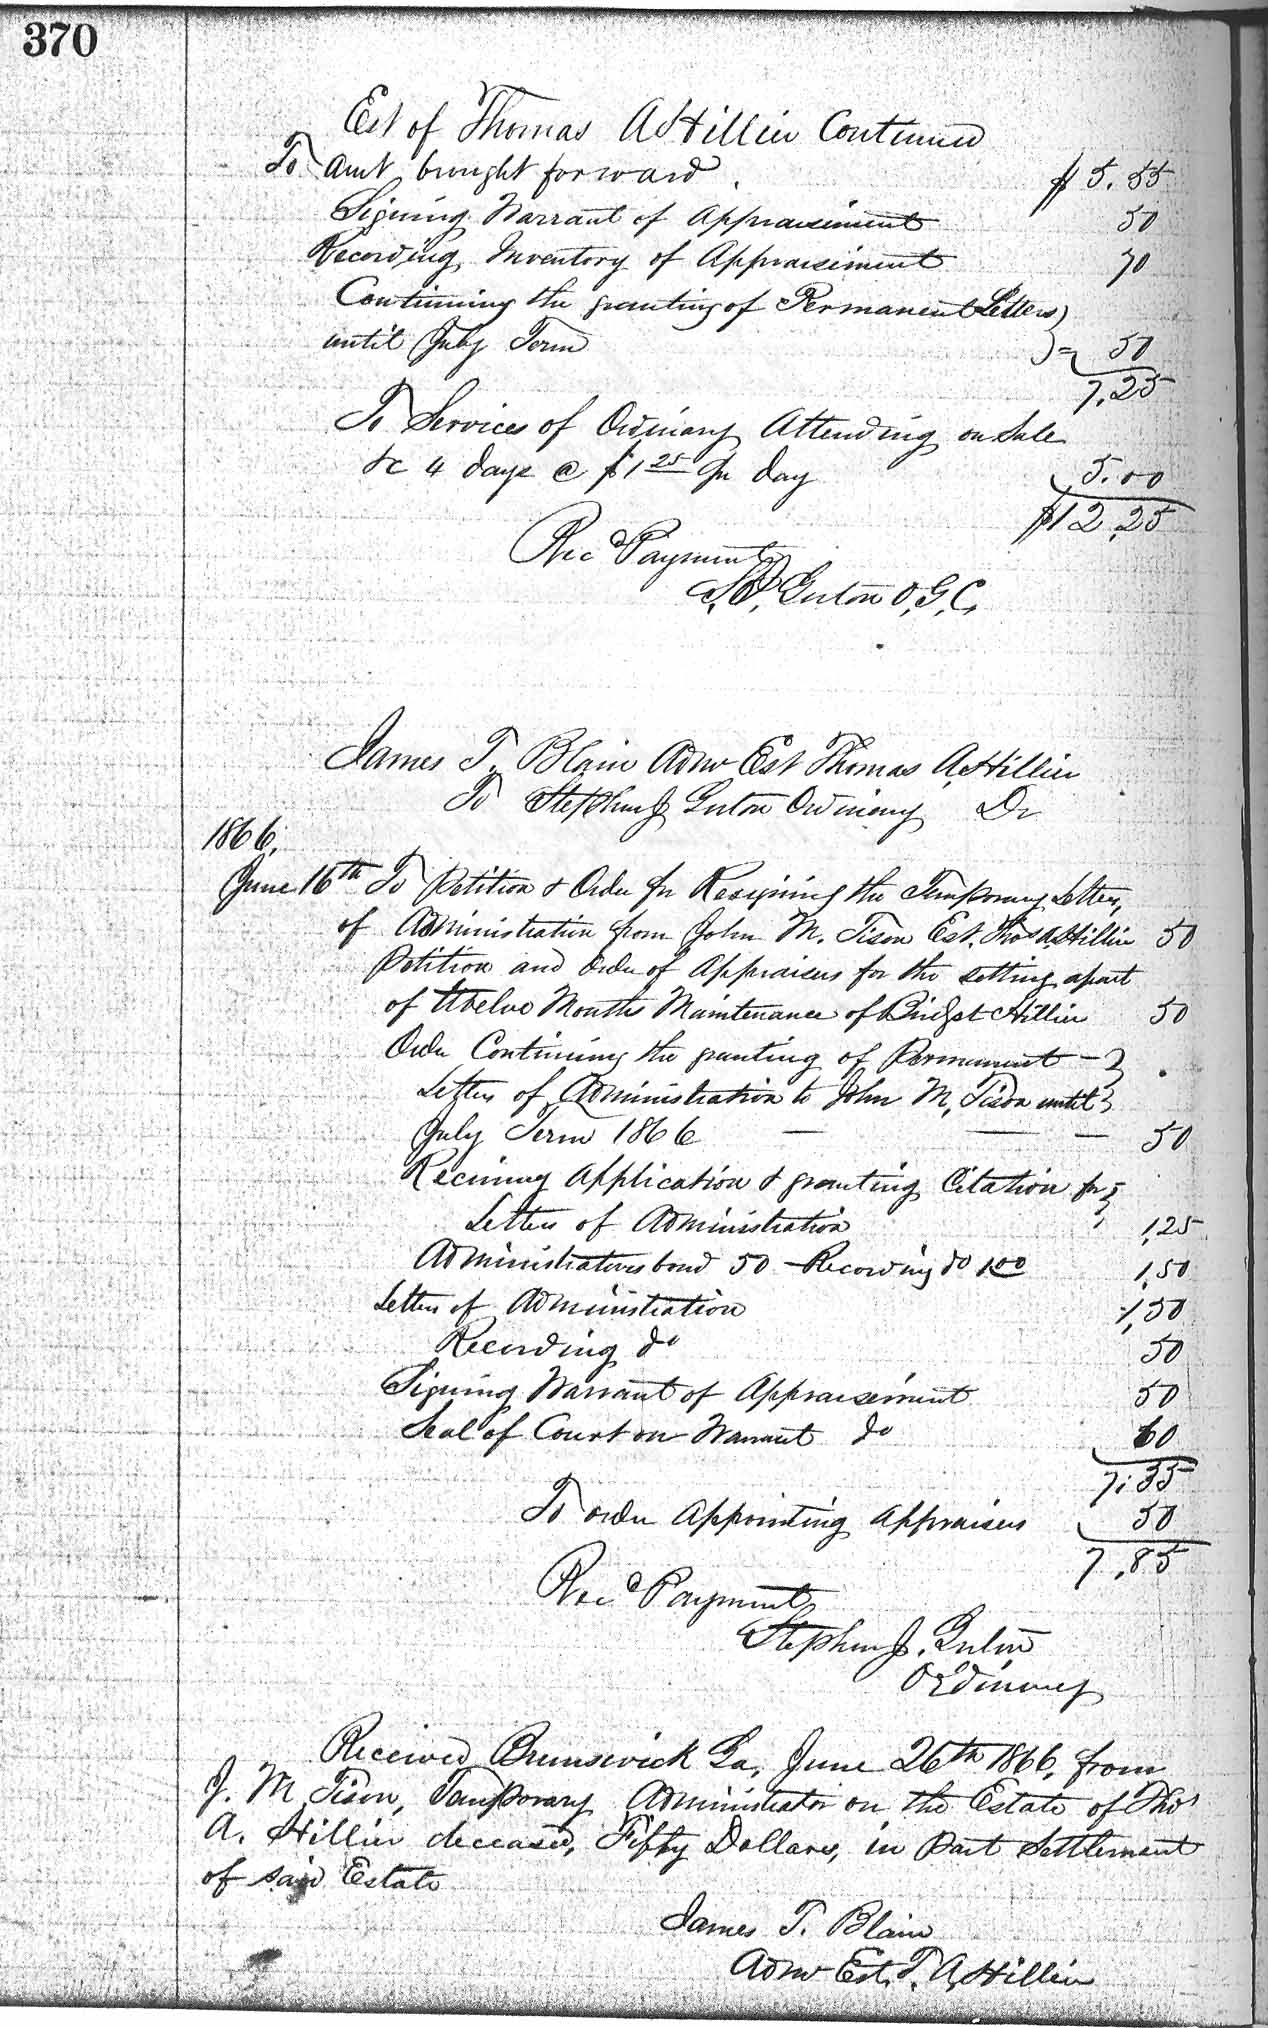 370
Est of Thomas A Hillier Continued
To Amt brought forward. $5.55
Signing Warrant of Appraisement 50
Recording Inventory of Appraisement 70
Continuing the granting of Permanent Letters)
until July Term )= 50
7.25
To Services of Ordinary Attending on Sale
&c 4 days @ $1 25 Pr day 5.00
$12.25
Rec d Payment
S.J. Guton O.G.C.
James T. Blain Admr Est Thomas A. Hillier
To Stephen J Guton Ordinary Dr
1866.
June 16th To Petition & Order for Resigning the Temporary Letters,
of Administration from John M. Tison Est. Thos A. Hillier 50
Petition and Order of Appraisers for the setting apart
of twelve Months Maintenance of Bridget Hillier 50
Order Continuing the granting of Permanent - }
Letters of Administration to John M. Tison until }
July Term 1866 — — — 50
Reciving Application & granting Citation for }
Letters of Administration 1,25
Administrators bond 50 - Recording do 1 00 1,50
Letters of Administration 1,50
Recording do 50
Signing Warrant of Appraisement 50
Seal of Court on Warrant do 60
7.35
To order Appointing Appraisers 50
7.85
Rec d Payment
Stephen J. Guton
Ordinary
Received Brunswick Ga, June 26th 1866, from
J. M Tison, Temporary Administrator on the Estate of Thos
A. Hillier deceased, Fifty Dollars, in Part Settlement
of said Estate
James T. Blain
Admr Est. T. A. Hillier